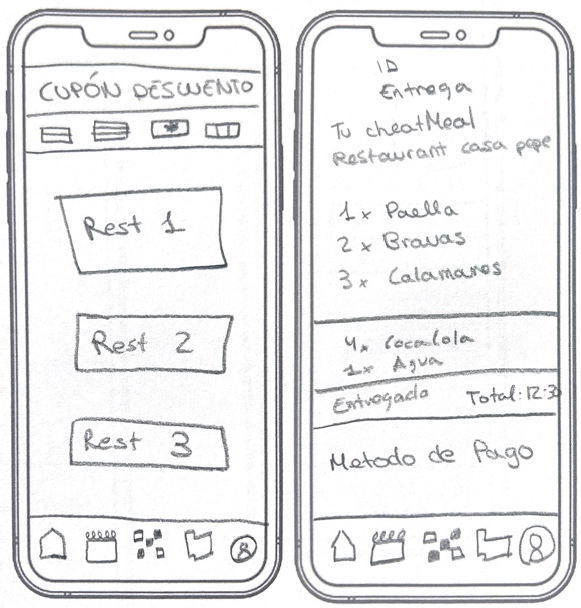 CUPÓN DESCUENTO
Rest 1
Rest 2
Rest 3
ID
Entrega
Tu cheatMeal
Restaurant casa pepe
1x Paella
2x Bravas
3x Calamares
4x CocaCola
1x Agua
Entregado Total: 12:30
Metodo de Pago